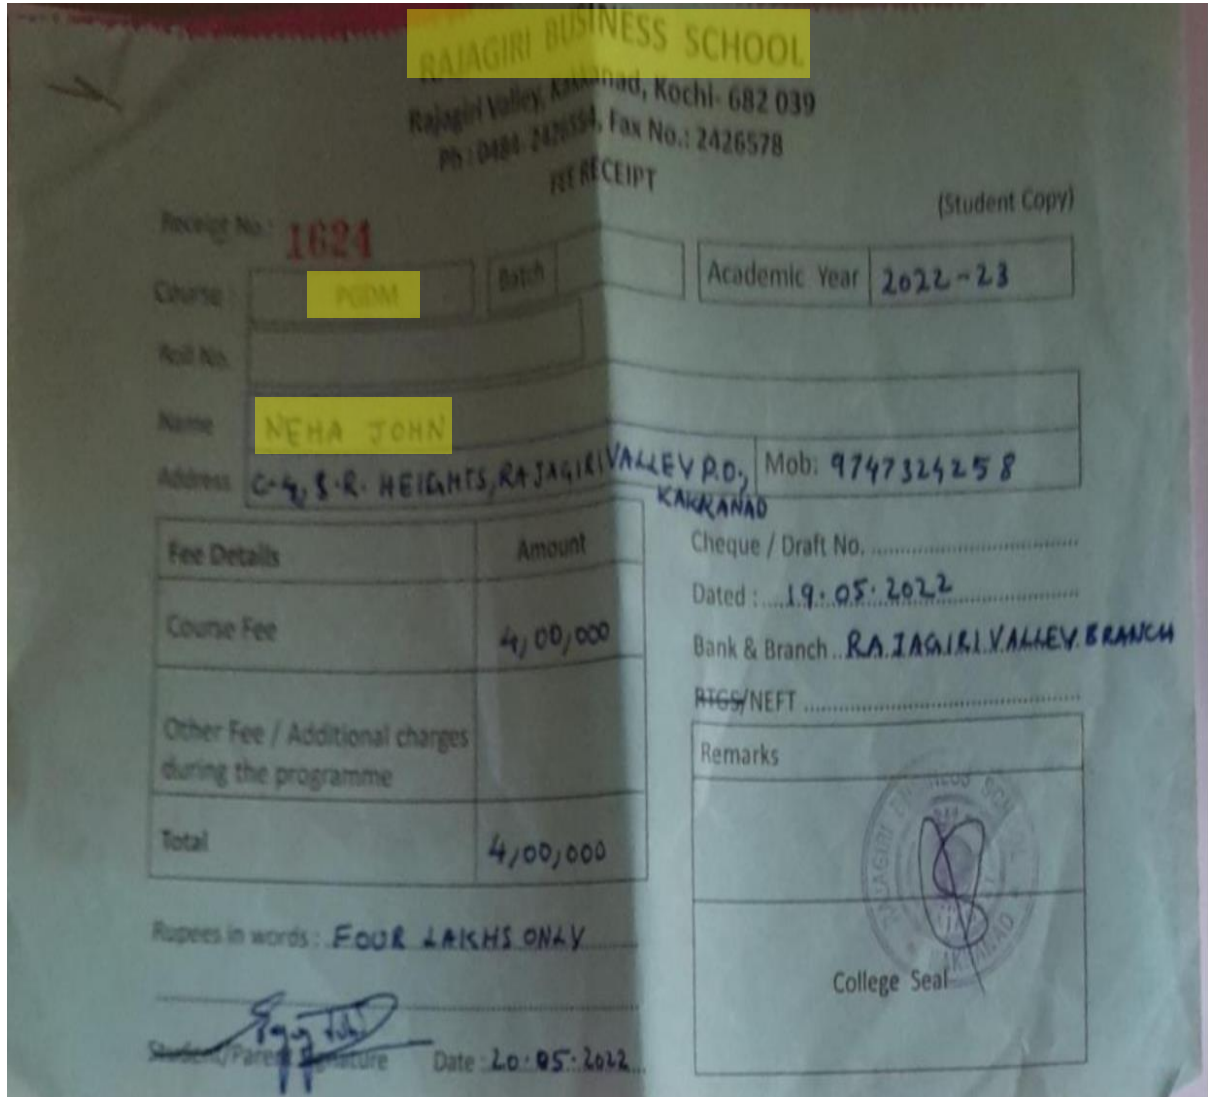 RAJAGIRI BUSINESS SCHOOL
Rajagiri Valley, Kakkanad, Kochi- 682 039
Ph : 0484- 2426554, Fax No.: 2426578
FEE RECEIPT
(Student Copy)
Receipt No.: 1624
Course : PGDM Batch Academic Year 2022-23
Roll No.
Name NEHA JOHN
Address C-4, S.R. HEIGHTS, RAJAGIRI VALLEY P.O, KAKKANAD Mob: 9747324258
Fee Details Amount
Course Fee 4,00,000
Other Fee / Additional charges
during the programme
Total 4,00,000
Cheque / Draft No.
Dated : 19.05.2022
Bank & Branch RAJAGIRI VALLEY BRANCH
RTGS/NEFT
Remarks
RAJAGIRI BUSINESS SCHOOL
KAKKANAD
College Seal
Rupees in words : FOUR LAKHS ONLY
Student/Parent Signature Date : 20.05.2022